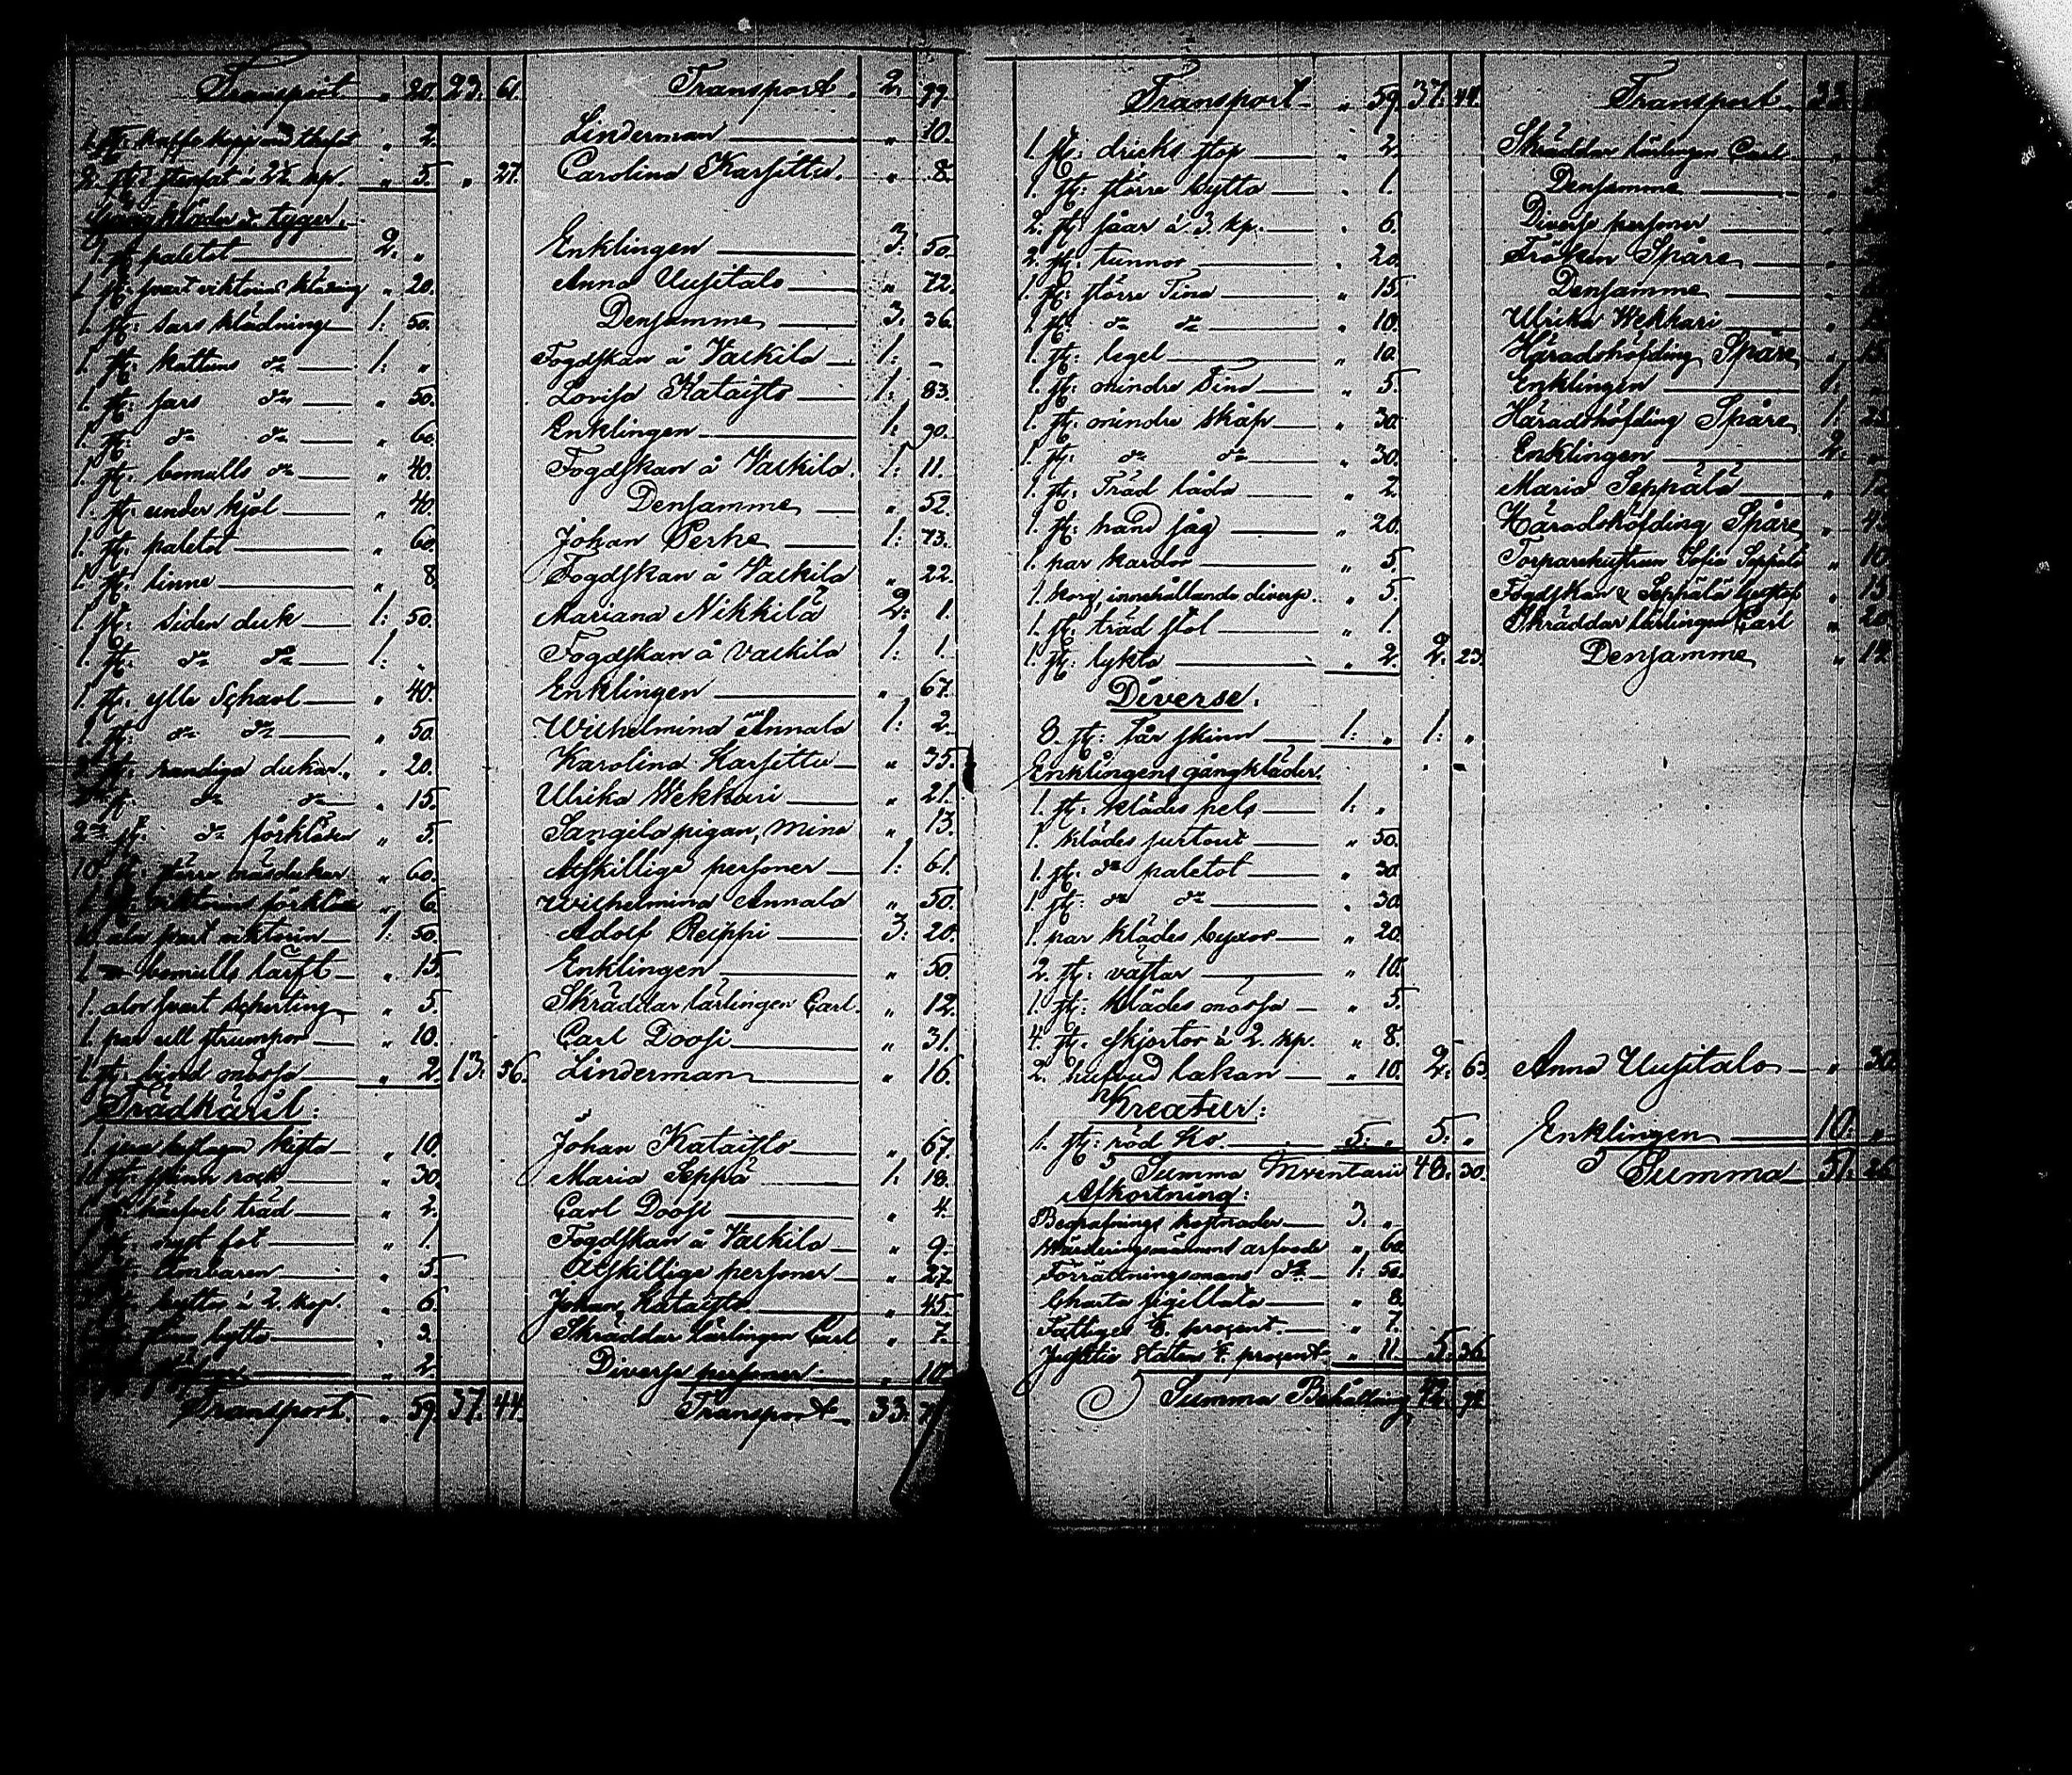 Transport „ 20. 23. 61. Transport 2. 99.
1. st: kaffe kopp med thefat „ 2. Linderman „ 10.
2. st: stenfat à 2½ kp. „ 5. „ 27. Carolina Karsittu. „ 8.
Gångkläder & tyger.
1. st paletot 2. „ Enklingen 3. 50.
1. st: svart viktoria klädning „ 20. Anna Uusitalo „ 72.
1. st: sars klädning 1: 50. Densamme 3. 36.
1. st: kattuns do 1: „ Fogdskan å Vaskila 1: –
1. st: sars do „ 50. Lovisa Kataisto 1: 83.
1. st: do do „ 60. Enklingen 1: 90.
1. st: bomulls do „ 40. Fogdskan å Vaskila. 1: 11.
1. st: under kjol „ 40. Densamme „ 52.
1. st: paletot „ 60. Johan Perhe 1: 73.
1. st: linne „ 8. Fogdskan å Vaskila „ 22.
1. st: siden duk 1: 50. Mariana Nikkilä 2: 1.
1. st: do do 1: „ Fogdskan å Vaskila 1: 1.
1. st: ylle Schavl „ 40. Enklingen „ 67.
1. st: do do „ 50. Wilhelmina Annala 1: 2.
st: randiga dukar „ 20. Karolina Karsittu „ 35.
st: do do „ 15. Ulrika Wekkari „ 21.
2 st: do förkläden „ 5. Sangila pigan, Mina „ 13.
10. st: större näsdukar „ 60. Atskillige personer 1: 61.
1. st: viktoria förkläde „ 6. Wilhelmina Annala „ 50.
aln svart viktoria 1: 50. Adolf Reippi 3: 20.
1 bomulls lärft „ 15. Enklingen „ 50.
1. aln svart scherting „ 5. Skräddar lärlingen Carl. „ 12.
1. par ull strumpor „ 10. Carl Doosi „ 31.
1. st: bind mössa „ 2. 13. 56. Linderman „ 16.
Trädkäril:
1. jern beslagen kista „ 10. Johan Kataisto „ 67.
1. st: spinn rock „ 30. Maria Seppä 1: 18.
träd „ 2. Carl Doosi „ 4.
fot „ 1. Fogdskan å Vaskila „ 9.
„ 5. Atskillige personer „ 27.
bytta à 2. kp. „ 6. Johan Kataisto „ 45.
bytta „ 3. Skräddar lärlingen Carl „ 7.
„ 2. Diverse personer „ 10.
Transport. „ 59. 37. 44. Transport 33.
Transport „ 59. 37. 44. Transport 33.
1. st: dricks stop „ 2. Skräddar lärlingen Carl „
1. st: större bytta „ 1. Densamme „
2. st: såar à 3 kp. „ 6. Diverse personer „
2. st: tunnor „ 20. Fröken Spåre „
1. st: större Tina „ 15. Densamme „
1. st: do do „ 10. Ulrika Wekkari „
1. st: legel „ 10. Häradshöfding Spåre „ 15
1. st: mindre Tina „ 5. Enklingen 1. „
1. st: mindre skåp „ 30. Häradshöfding Spåre 1. 25
1. st: do do „ 30. Enklingen 2. „
1. st: Träd låda „ 2. Maria Seppälä „ 12
1. st: hand såg „ 20. Häradshöfding Spåre „ 45
1. par kardor „ 5. Torparehustrun Sofia Seppälä „ 10
1. korg, innehållande diverse. „ 5. Fogdskan & Sephälä „ 15
1. st: träd stol „ 1. Skräddar lärlingen Carl „ 20
1. st: lykta „ 2. 2. 23. Densamme „ 12
Diverse.
3. st: Får skinn 1: „ 1: „
Enklingens gångkläder.
1. st: klädes pels 1: „
1. klädes surtout „ 50.
1. st: do paletot „ 30.
1. st: do do „ 30.
1. par klädes byxor „ 20.
2. st: västar „ 10.
1. st: klädes mössa „ 5.
4. st: skjortor à 2. kp. „ 8.
2. hufvud lakan „ 10. 2. 63. Anna Uusitalo „ 30.
Kreatur:
1. st: röd ko. 5. „ 5: „ Enklingen 10. „
Summa Inventarii 48: 30. Summa 51. 26
Afkortning:
Begrafnings kostnader 3. „
Wärderingsmännens arfvode „ 60.
Förrättningsmans do 1: 50.
Charta sigillata „ 8.
Fattiges 1/8. procent. „ 7.
Justitie Staten 1/4. procent „ 11. 5. 36.
Summa Behållning 42. 94